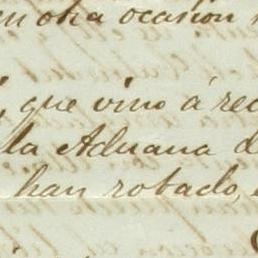 en otra ocasion
, que vino á rec
la Aduana d
han robado,